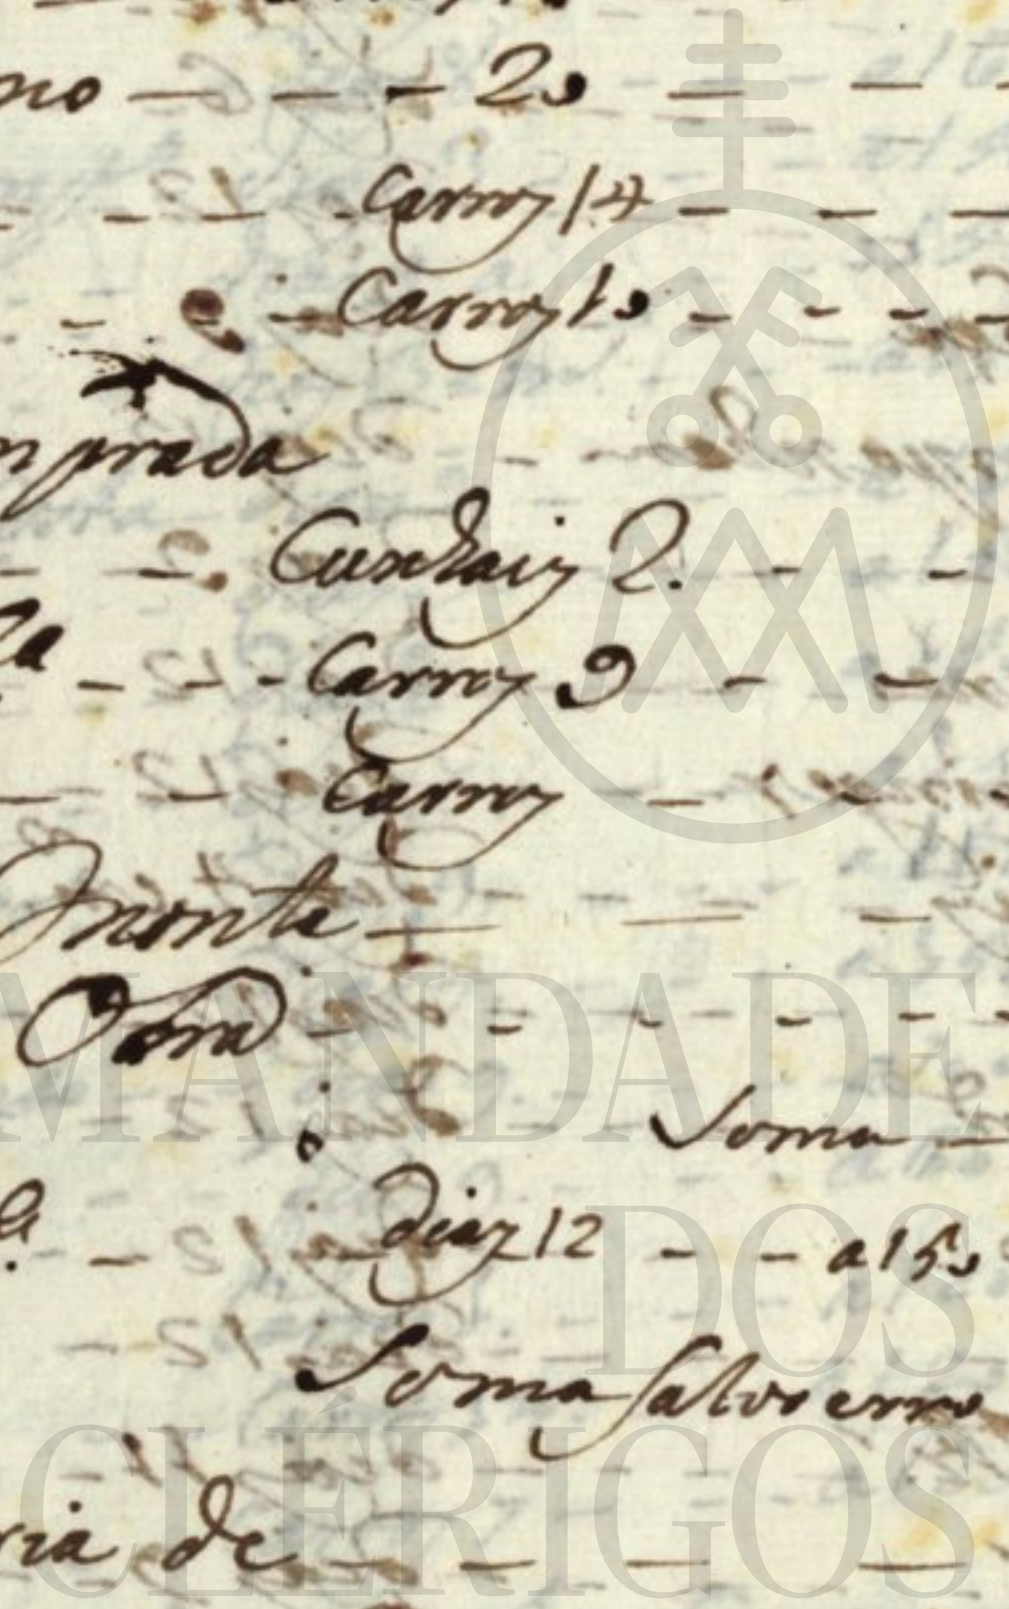 no — — — 20 — —
— — Carros 14 — — —
— — Carros 10 - - - -
mprada - - -
— — Quintais 2. - -
la - - - Carros 9 - —
— — Carros —
monte — — —
Obra - - - - - -
Soma —
— dias 12 - - a 150
Soma salvo erro
ria de — — — —
MANDADE
DOS
CLÉRIGOS